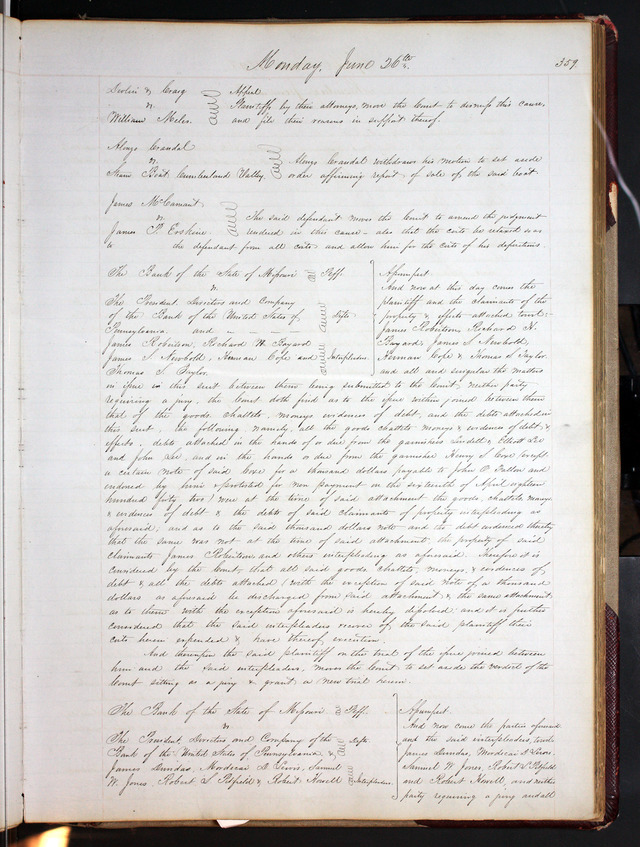 Monday, June 26th.
359
Devlin & Craig Appeal
vs. Plaintiffs by their attorneys, move the Court to dismiss this cause,
William Meles. and file their reasons in support thereof.
Alonzo Crandal
vs. Alonzo Crandal withdraws his motion to set aside
Steam Boat Cumberland Valley. order affirming report of sale of the said boat
James McCamant
vs. The said defendant moves the Court to amend the judgment
James P. Erskine. rendered in this cause - also that the costs be relaxed so as
to the defendant from all costs and allow him for the costs of his depositions.
The Bank of the State of Missouri Plff. Assumpsit
vs. And now at this day comes the
The President Directors and Company plaintiff and the claimants of the
of the Bank of the United States of Defts. property & effects attached to wit:
Pennsylvania and James Robertson, Richard H.
James Robertson, Richard H. Bayard Bayard, James S. Newbold,
James S. Newbold, Herman Cope and Interpleaders. Herman Cope & Thomas S. Taylor
Thomas S. Taylor and all and singular the matters
in issue in this suit between them being submitted to the Court, neither party
requiring a jury, the Court doth find as to the issue within joined between them
that of the goods chattels, moneys evidences of debt, and the debts attached in
this suit, the following namely, all the goods chattels moneys & evidences of debt &
effects, debts attached in the hands of or due from the garnishees Lindell & Elliott Lee
and John Lee, and in the hands or due from the garnishee Henry S. Coxe except
a certain note of said Coxe for a thousand dollars payable to John O'Fallon and
endorsed by him & protested for non payment on the sixteenth of April eighteen
hundred forty two, were at the time of said attachment the goods, chattels moneys
& evidences of debt & the debts of said claimants of property interpleading as
aforesaid, and as to the said thousand dollars note and the debt evidenced thereby
that the same was not at the time of said attachment, the property of said
claimants James Robertson and others interpleading as aforesaid. Therefore it is
considered by the Court that all said goods, chattels, moneys, & evidences of
debt & all the debts attached (with the exception of said note of a thousand
dollars as aforesaid be discharged from said attachment & the same attachment
as to them with the exception aforesaid is hereby dissolved and it is further
considered that the said interpleaders recover of the said plaintiff their
costs herein expended & have thereof execution.
And thereupon the said plaintiff on this trial of the issue joined between
him and the said interpleaders, moves the Court to set aside the verdict of the
Court sitting as a jury & grant a new trial herein.
The Bank of the State of Missouri Plff. Assumpsit
vs. And now come the parties aforesaid
The President, Directors and Company of the Defts. and the said interpleaders, to wit
Bank of the United States of Pennsylvania, & James Dundas, Mordecai D. Lewis,
James Dundas, Mordecai D. Lewis, Samuel Samuel W. Jones, Robert S. Pitfield
W. Jones, Robert S. Pitfield & Robert Howell Interpleaders. and Robert Howell, and neither
party requiring a jury and all